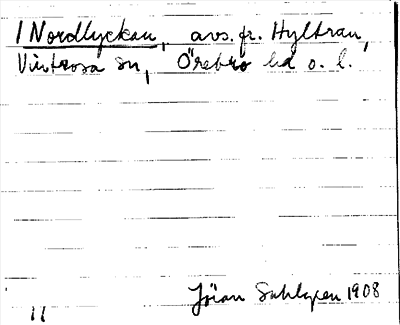 1 Nordlyckan, avs. fr. Hyltran,
Vintrosa sn, Örebro hd o. l.
Jöran Sahlgren 1908
11